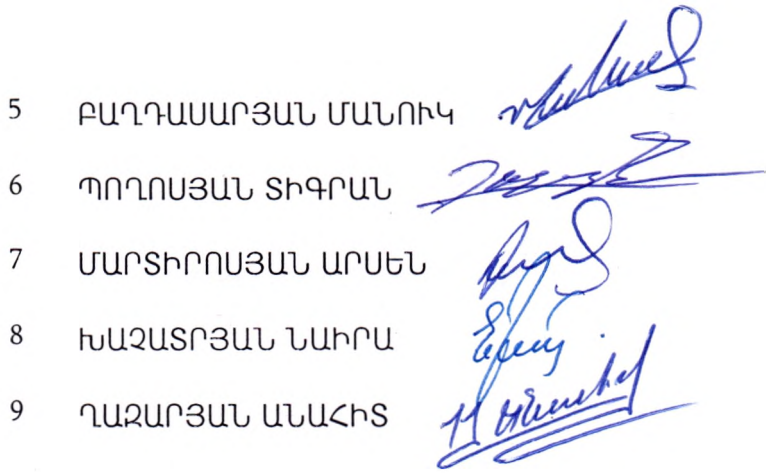 5 ԲԱՂԴԱՍԱՐՅԱՆ ՄԱՆՈՒԿ
6 ՊՈՂՈՍՅԱՆ ՏԻԳՐԱՆ
7 ՄԱՐՏԻՐՈՍՅԱՆ ԱՐՍԵՆ
8 ԽԱՉԱՏՐՅԱՆ ՆԱԻՐԱ
9 ՂԱԶԱՐՅԱՆ ԱՆԱՀԻՏ